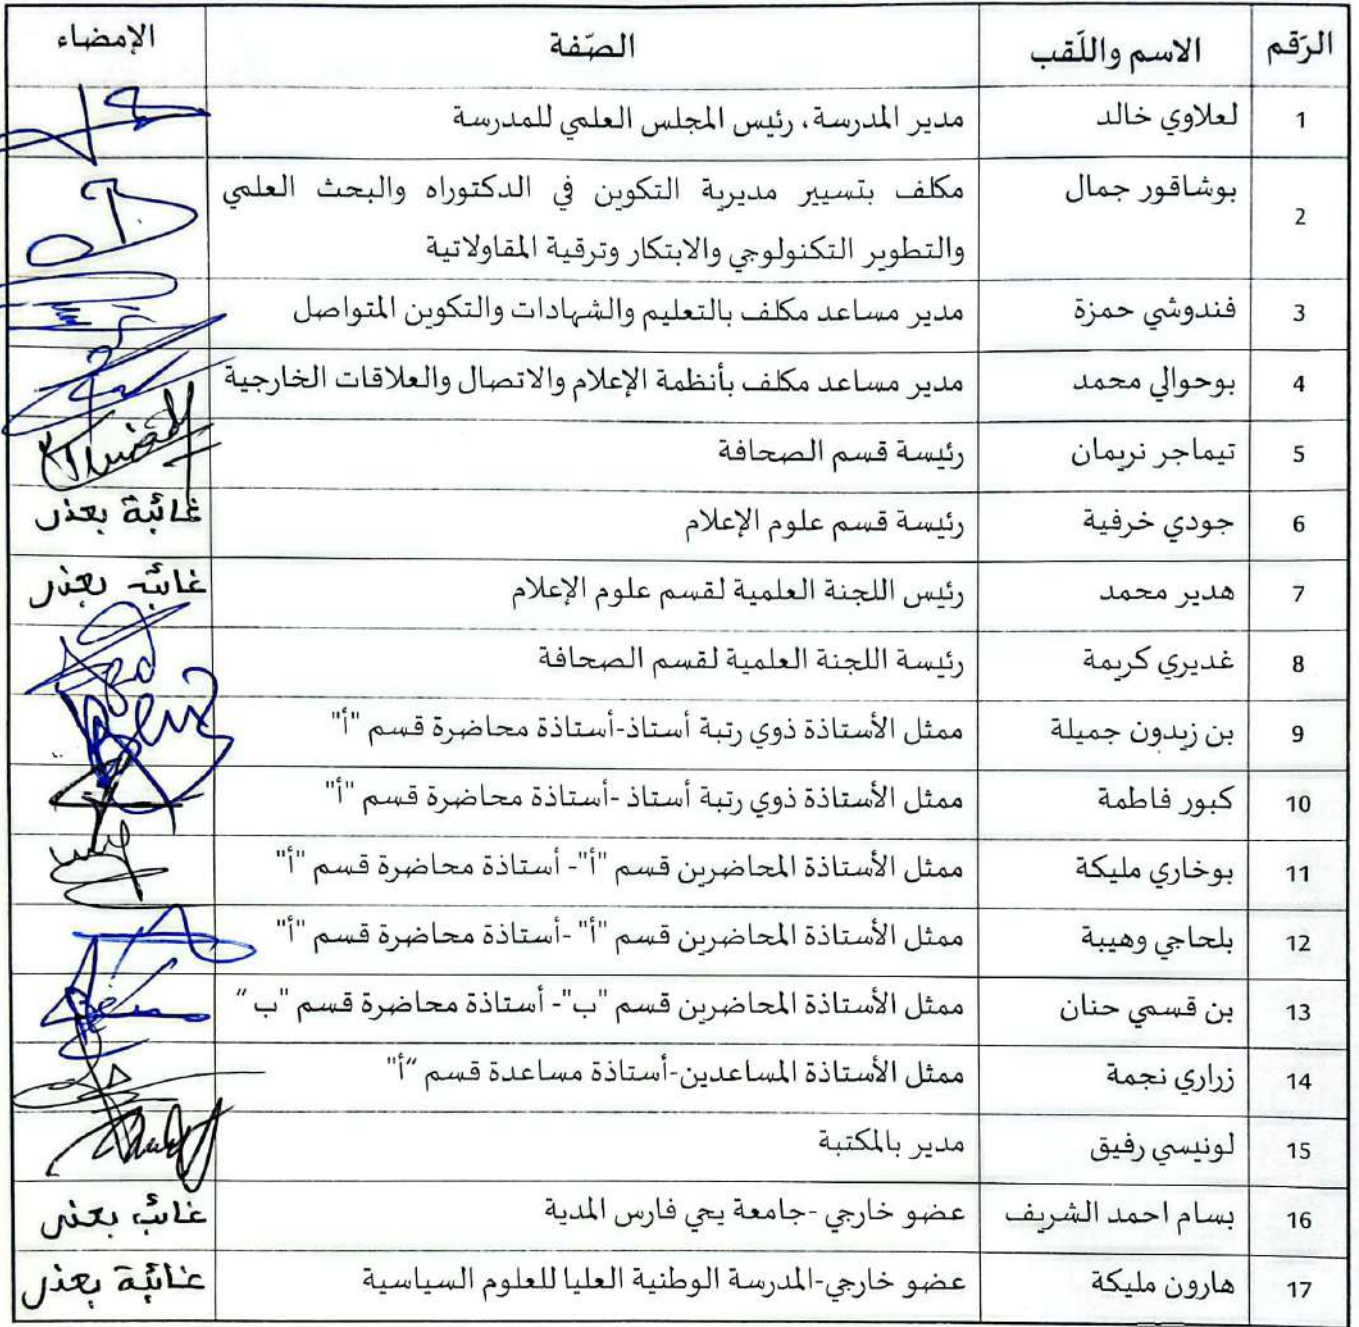 الرَقم الاسم واللَقب الصّفة الإمضاء
1 لعلاوي خالد مدير المدرسة، رئيس المجلس العلمي للمدرسة
2 بوشاقور جمال مكلف بتسيير مديرية التكوين في الدكتوراه والبحث العلمي
والتطوير التكنولوجي والابتكار وترقية المقاولاتية
3 فندوشي حمزة مدير مساعد مكلف بالتعليم والشهادات والتكوين المتواصل
4 بوحوالي محمد مدير مساعد مكلف بأنظمة الإعلام والاتصال والعلاقات الخارجية
5 تيماجر نريمان رئيسة قسم الصحافة
6 جودي خرفية رئيسة قسم علوم الإعلام غائبة بعذر
7 هدير محمد رئيس اللجنة العلمية لقسم علوم الإعلام غائب بعذر
8 غديري كريمة رئيسة اللجنة العلمية لقسم الصحافة
9 بن زيدون جميلة ممثل الأستاذة ذوي رتبة أستاذ-أستاذة محاضرة قسم "أ"
10 كبور فاطمة ممثل الأستاذة ذوي رتبة أستاذ -أستاذة محاضرة قسم "أ"
11 بوخاري مليكة ممثل الأستاذة المحاضرين قسم "أ"- أستاذة محاضرة قسم "أ"
12 بلحاجي وهيبة ممثل الأستاذة المحاضرين قسم "أ" -أستاذة محاضرة قسم "أ"
13 بن قسمي حنان ممثل الأستاذة المحاضرين قسم "ب"- أستاذة محاضرة قسم "ب"
14 زراري نجمة ممثل الأستاذة المساعدين-أستاذة مساعدة قسم "أ"
15 لونيسي رفيق مدير بالمكتبة
16 بسام احمد الشريف عضو خارجي -جامعة يحي فارس المدية غائب بعذر
17 هارون مليكة عضو خارجي-المدرسة الوطنية العليا للعلوم السياسية غائبة بعذر